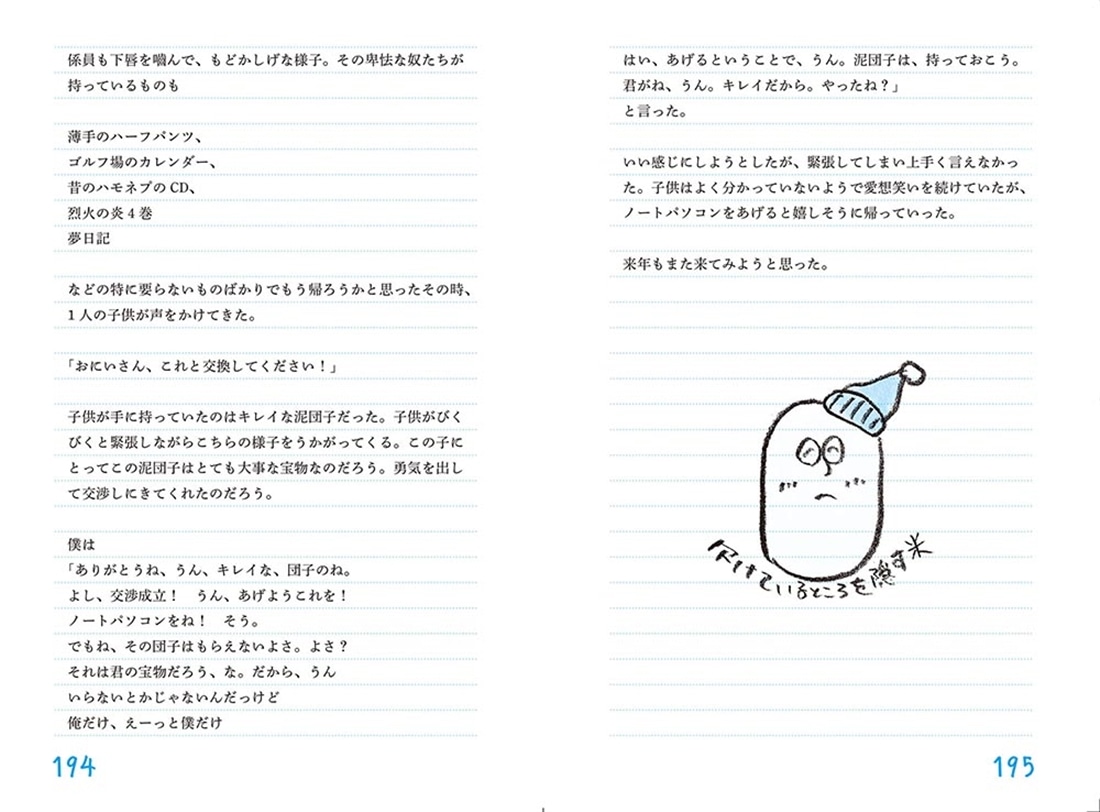 係員も下唇を噛んで、もどかしげな様子。その卑怯な奴たちが
持っているものも
薄手のハーフパンツ、
ゴルフ場のカレンダー、
昔のハモネプのCD、
烈火の炎4巻
夢日記
などの特に要らないものばかりでもう帰ろうかと思ったその時、
1人の子供が声をかけてきた。
「おにいさん、これと交換してください！」
子供が手に持っていたのはキレイな泥団子だった。子供がびく
びくと緊張しながらこちらの様子をうかがってくる。この子に
とってこの泥団子はとても大事な宝物なのだろう。勇気を出し
て交渉しにきてくれたのだろう。
僕は
「ありがとうね、うん、キレイな、団子のね。
よし、交渉成立！　うん、あげようこれを！
ノートパソコンをね！　そう。
でもね、その団子はもらえないよさ。よさ？
それは君の宝物だろう、な。だから、うん
いらないとかじゃないんだっけど
俺だけ、えーっと僕だけ
194
はい、あげるということで、うん。泥団子は、持っておこう。
君がね、うん。キレイだから。やったね？」
と言った。
いい感じにしようとしたが、緊張してしまい上手く言えなかっ
た。子供はよく分かっていないようで愛想笑いを続けていたが、
ノートパソコンをあげると嬉しそうに帰っていった。
来年もまた来てみようと思った。
欠けているところを隠す米
195